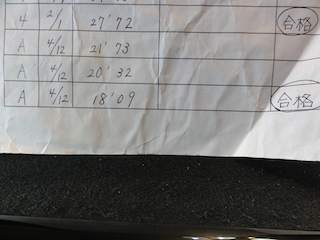 4 2/1 27'72 合格
A 4/12 21'73
A 4/12 20'32
A 4/12 18'09 合格